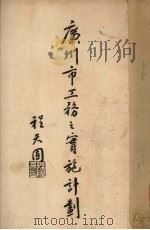 廣州市工務之實施計劃
程天固